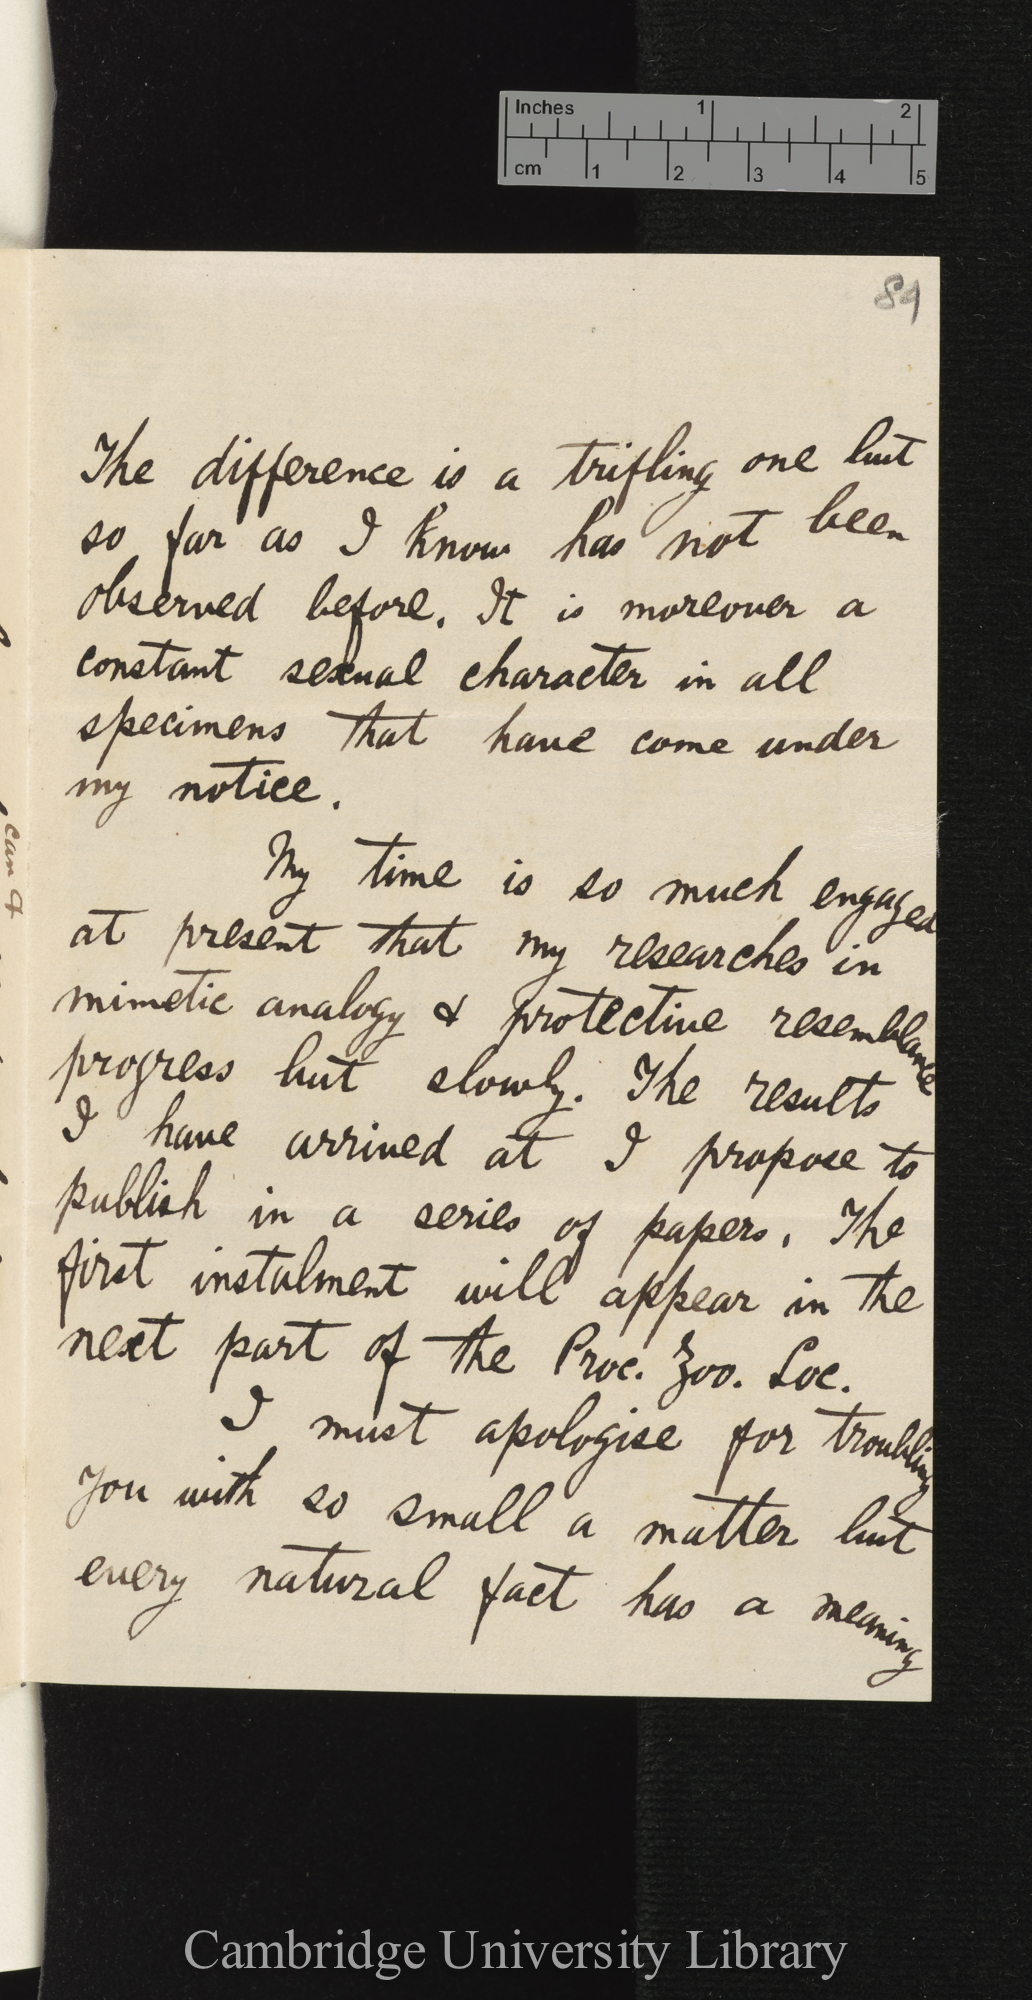 Inches 1 2
cm 1 2 3 4 5
89
The difference is a trifling one but
so far as I know has not been
observed before. It is moreover a
constant sexual character in all
specimens that have come under
my notice.
My time is so much engaged
at present that my researches in
mimetic analogy & protective resemblance
progress but slowly. The results
I have arrived at I propose to
publish in a series of papers. The
first instalment will appear in the
next part of the Proc. Zoo. Soc.
I must apologise for troubling
you with so small a matter but
every natural fact has a meaning
can
Cambridge University Library